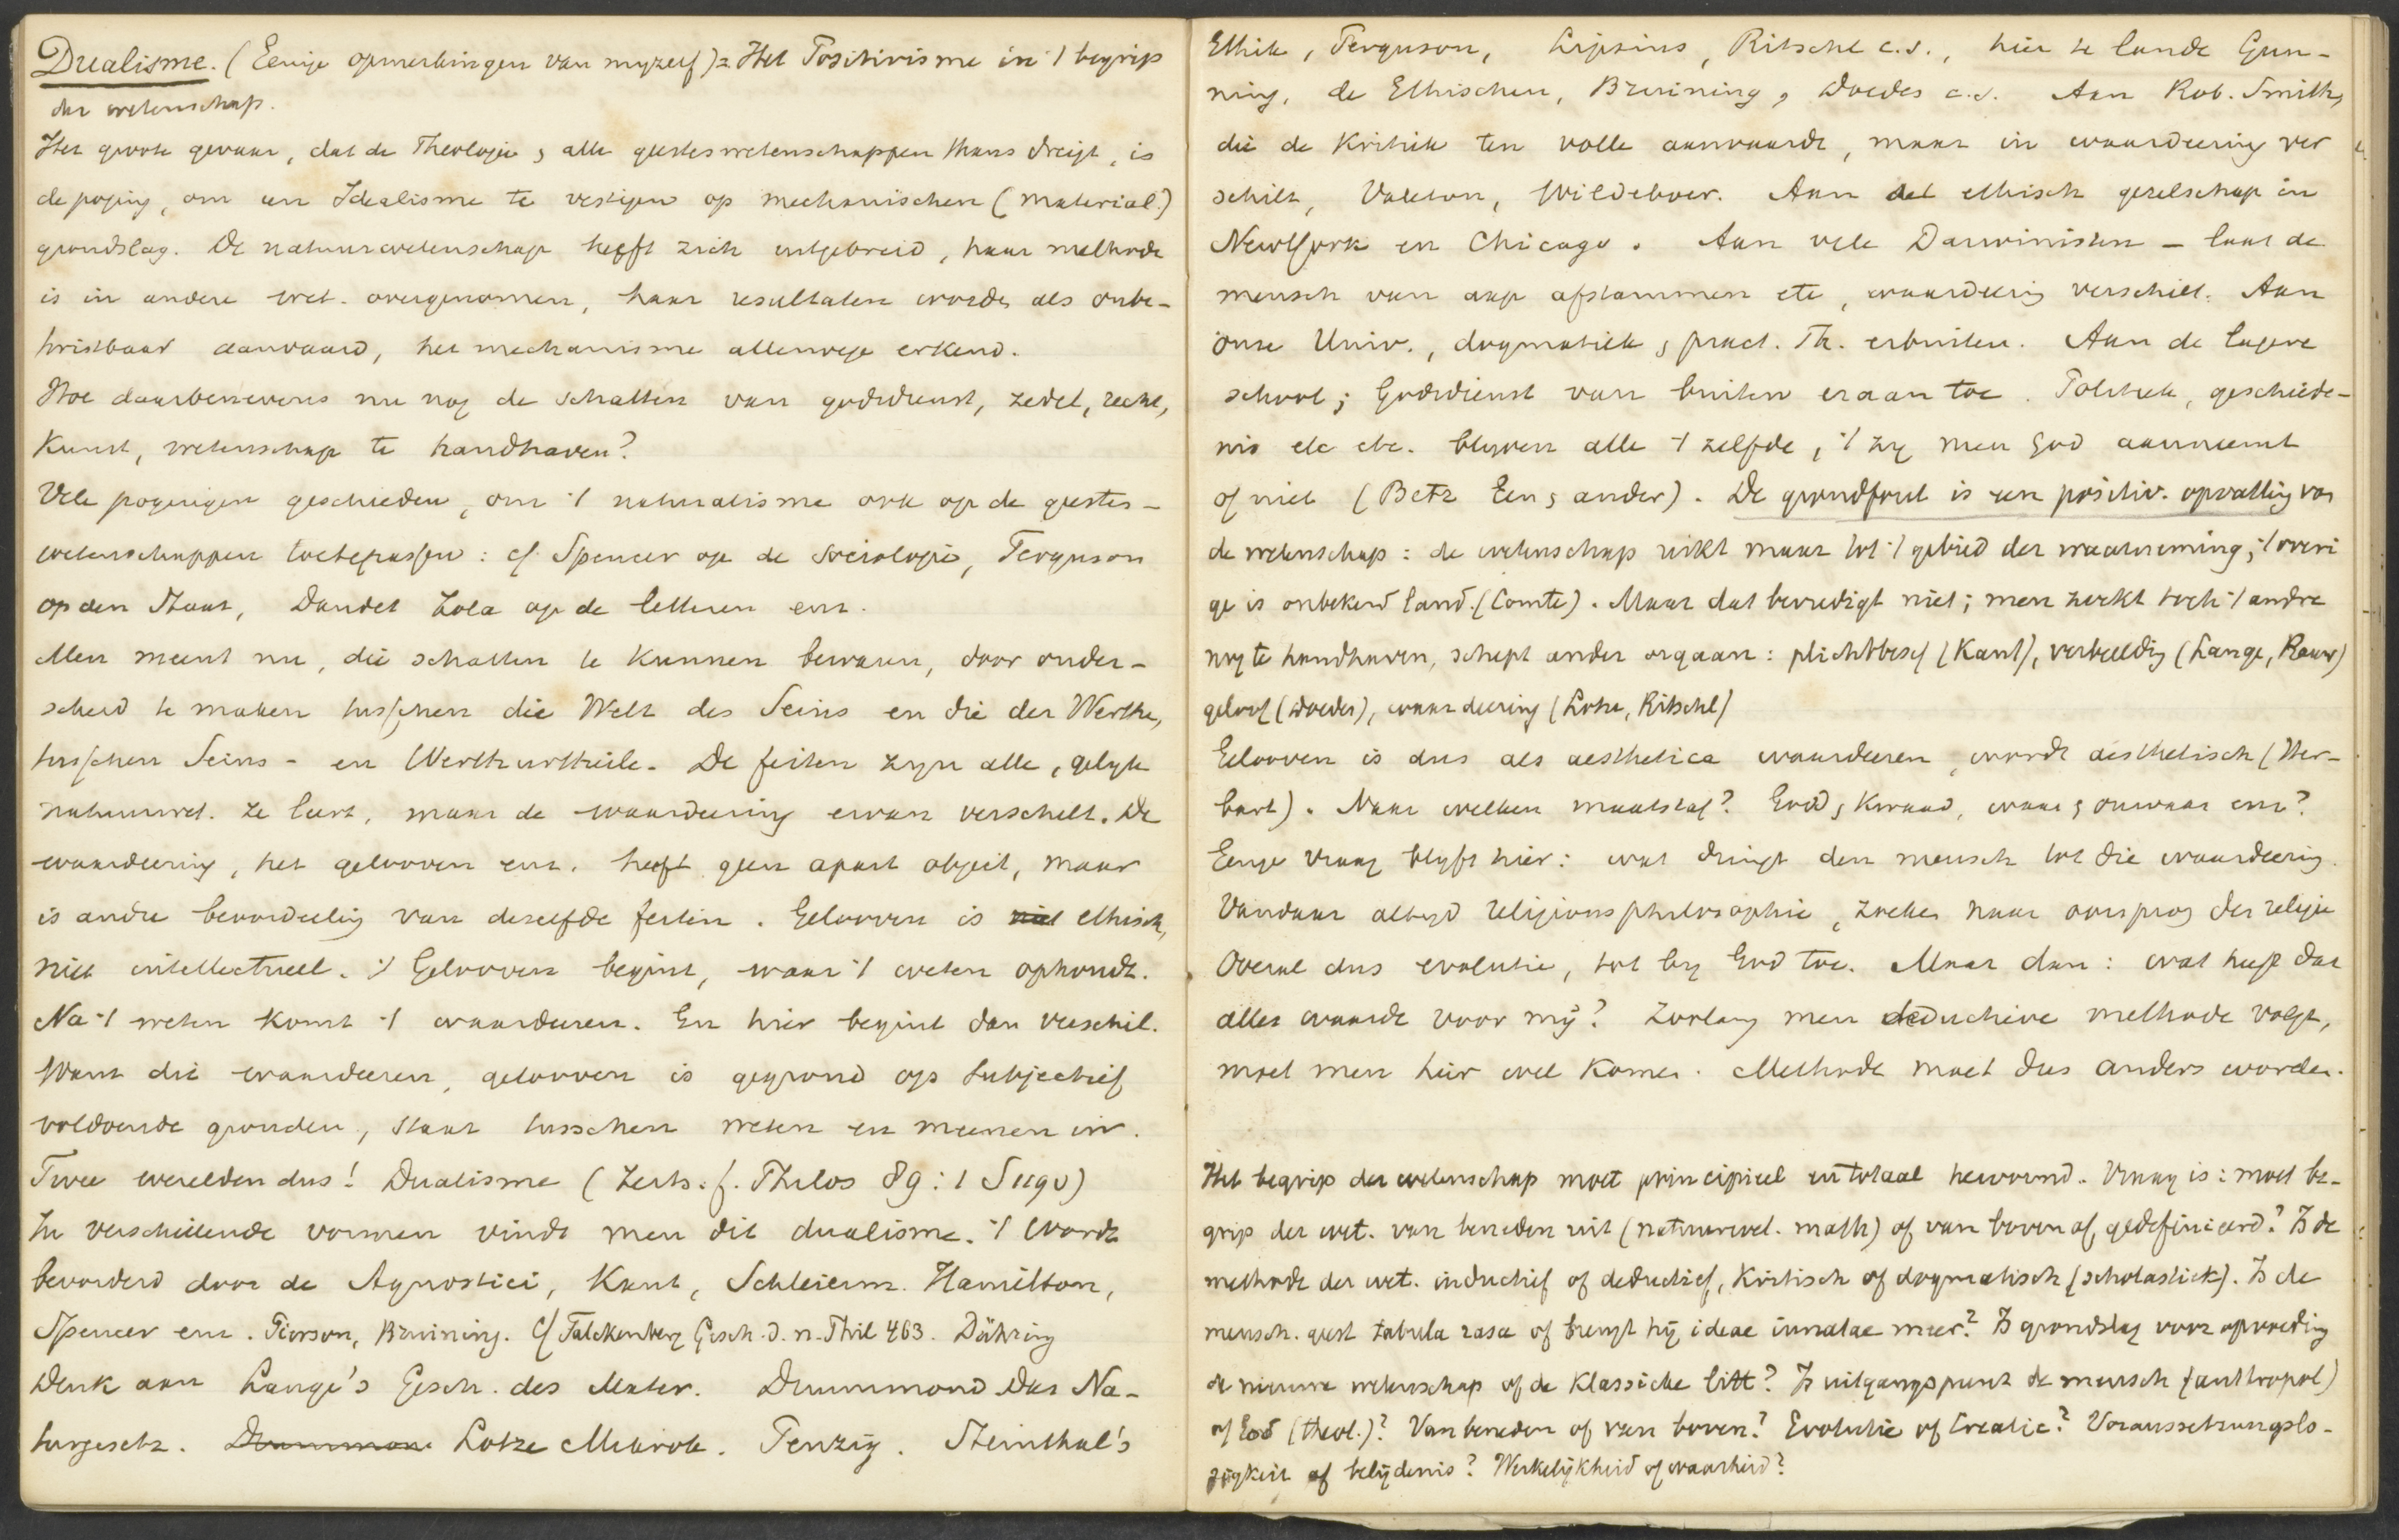 Dualisme. (Eenige opmerkingen van myzelf) = Het Positivisme in 't begrip
der wetenschap.
Het groote gevaar, dat de Theologie & alle geesteswetenschappen thans dreigt, is
de poging, om een Idealisme te vestigen op mechanischen (material.)
grondslag. De natuurwetenschap heeft zich uitgebreid, haar methode
is in andere wet. overgenomen, haar resultaten worden als onbe-
twistbaar aanvaard, het mechanisme allerwege erkend.
Hoe daarbenevens nu nog de schatten van godsdienst, zedel, recht,
Kunst, wetenschap te handhaven?
Vele pogingen geschieden, om 't naturalisme ook op de geestes-
wetenschappen toetepassen: cf Spencer op de Sociologie, Ferguson
op den Staat, Daudet Zola op de letteren enz.
Men meent nu, die schatten te kunnen bewaren, door onder-
scheid te maken tusschen die Welt des Seins en die der Werthe,
tusschen Seins- en Werthurtheile. De feiten zyn alle, gelyk
natuurwet. ze leert, maar de waardeering ervan verschilt. De
waardeering, het gelooven enz. heeft geen apart object, maar
is andre beoordeeling van dezelfde feiten. Gelooven is niet ethisch,
niet intellectueel. 't Gelooven begint, waar 't weten ophoudt.
Na 't weten komt 't waardeeren. En hier begint dan verschil.
Want die waardeeren, gelooven is gegrond op subjectief
voldoende gronden, staat tusschen weten en meenen in.
Twee werelden dus! Dualisme (Zeits. f. Philos 89: 1
In verschillende vormen vindt men dit dualisme. 't Wordt
bevorderd door de Agnostici, Kant, Schleierm. Hamilton,
Spencer enz. Pierson, Bruining. Cf Falckenberg Gesch. d. n. Phil 463. Dühring
Denk aan Lange's Gesch. des Mater. Drummond Das Na-
turgesetz. Drummon Lotze Mikrok. Steinthal's
Ethik, Ferguson, Lipsius, Ritschl c.s., hier te lande Gun-
ning, de Ethischen, Bruining, Doedes c.s. Aan Rob. Smith,
die de Kritiek ten volle aanvaardt, maar in waardeering ver
schilt, Valeton, Wildeboer. Aan het ethisch gezelschap in
NewYork en Chicago. Aan vele Darwinisten - laat de
mensch van aap afstammen etc, waardeering verschilt. Aan
onze Univ., dogmatiek & pract. Th. erbuiten. Aan de lagere
school; Godsdienst van buiten eraan toe. Politiek, geschiede-
nis etc etc. blyven alle 't zelfde, 't zy men God aanneemt
of niet (Betz Een & ander). De grondfout is een positiv. opvatting van
de wetenschap: de wetenschap reikt maar tot 't gebied der waarneming; 't overi
ge is onbekend land. (Comte). Maar dat bevredigt niet; men zoekt toch 't andre
nog te handhaven, schept ander orgaan: plichtbesef (Kant), verbeelding (Lange, Rauw)
geloof (Doedes), waardeering (Lotze, Ritschl)
Gelooven is dus als aesthetica waardeeren, wordt aesthetisch (Her-
bart). Naar welken maatstaf? Goed & Kwaad, waar & onwaar enz?
Eenige vraag blyft hier: wat dringt den mensch tot die waardeering.
Vandaar altyd religionsphilosophie, zoeken naar oorsprong der religie
Overal dus evolutie, tot by God toe. Maar dan: wat heeft dat
alles waarde voor mij? Zoolang men deductieve methode volgt,
moet men hier wel komen. Methode moet dus anders worden.
Het begrip der wetenschap moet principieel en totaal hervormd. Vraag is: moet be-
grip der wet. van beneden uit (natuurwet. math) of van boven af, gedefinieerd? Is de
methode der wet. inductief of deductief, Kritisch of dogmatisch (scholastiek). Is de
mensch. geest tabula rasa of brengt hij ideae innatae mee? Is grondslag voor opvoeding
de nieuwe wetenschap of de Klassieke litt? Is uitgangspunt de mensch (anthropol)
of God (theol.)? Van beneden of van boven? Evolutie of Creatie? Voraussetzungslo-
sigkeit of belijdenis? Werkelijkheid of waarheid?